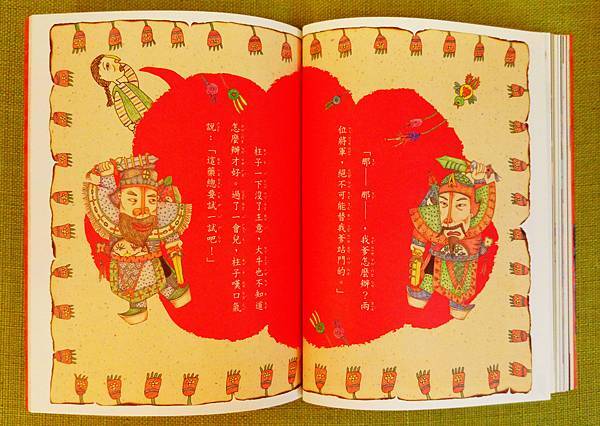 「那──那──，我爹怎麼辦？兩
位將軍，絕不可能替我爹站門的。」
柱子一下沒了主意，大牛也不知道
怎麼辦才好。過了一會兒，柱子嘆口氣
說：「這藥總要試一試吧！」